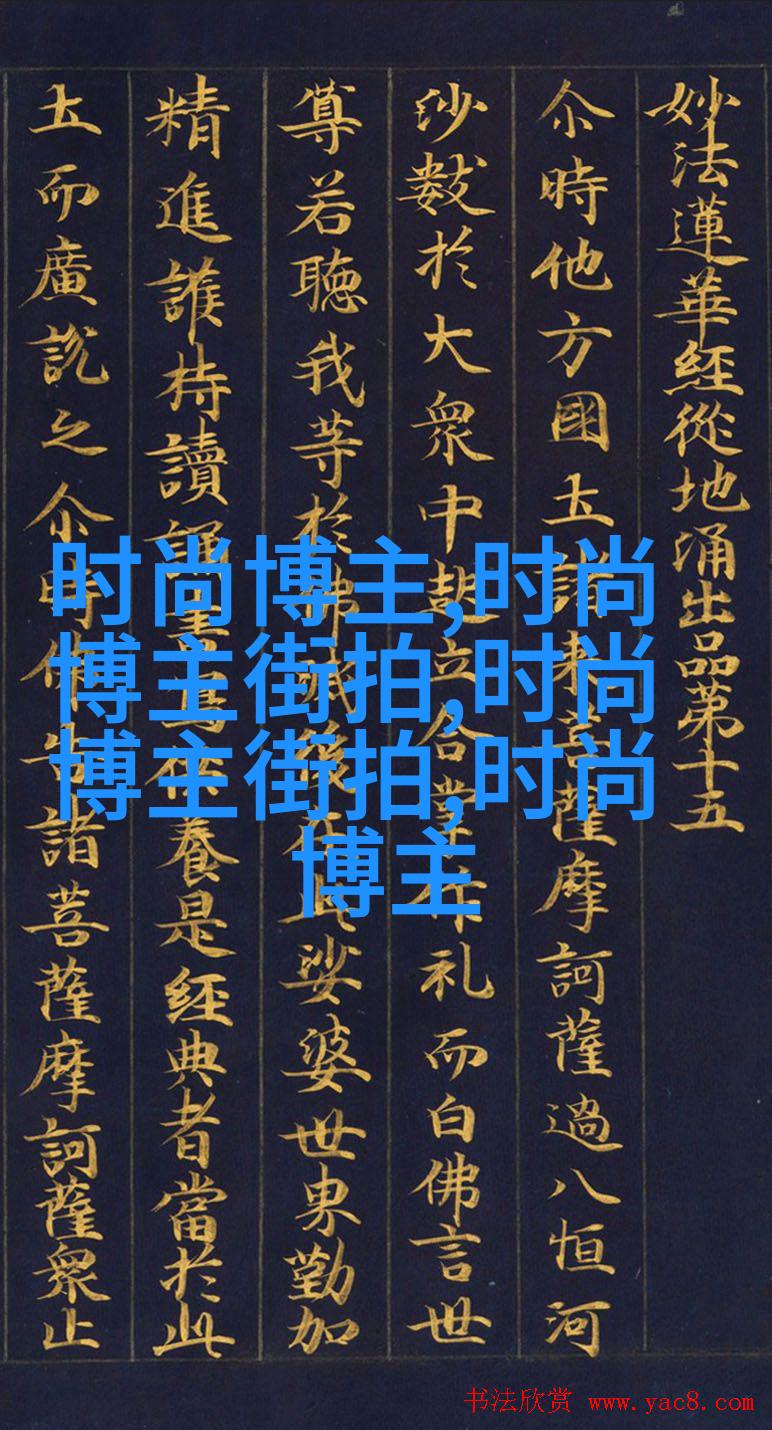 妙法蓮華經從地涌出品第十五
尒時他方國土諸来菩薩摩訶薩過八恒河
沙數於大衆中起立合掌作礼而白佛言世
尊若聽我等於佛滅後在此娑婆世界勤加
精進護持讀誦書寫供養是經典者當於此
土而廣說之尒時佛告諸菩薩摩訶薩衆止
时尚博主,时尚
博主街拍,时尚
博主街拍,时尚
博主
书法欣赏 www.yac8.com